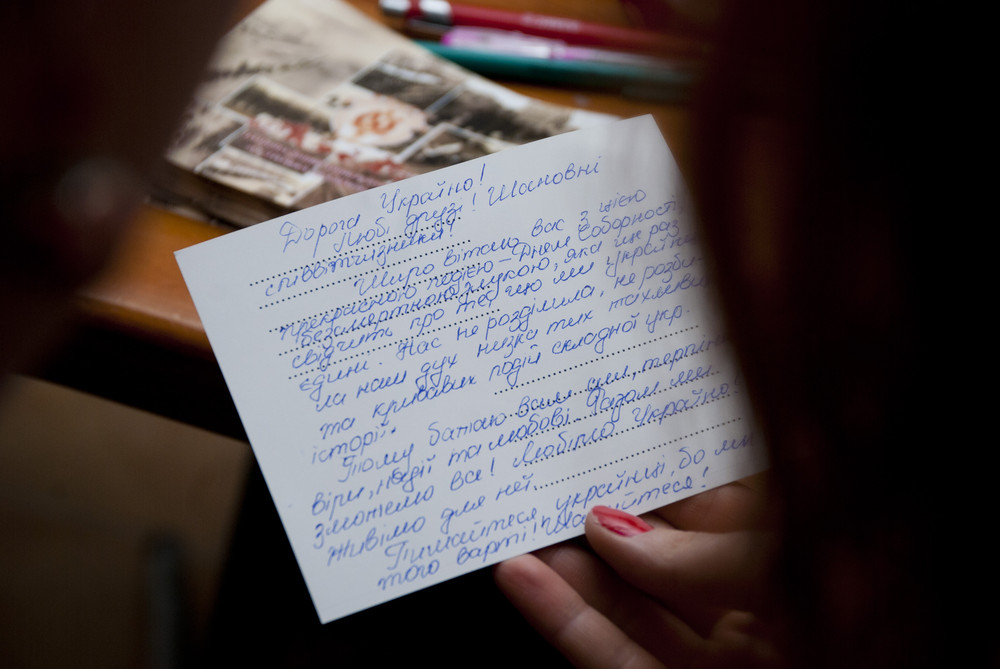 Дорога Україно!
Любі друзі! Шановні
співвітчизники!
Щиро вітаю вас з цією
прекрасною подією – Днем Соборності,
безсмертною злукою, яка ще раз
свідчить про те, що ми
єдині. Нас не розділила, не розби-
ла наш дух низка тих жахливих
та кривавих подій складної укр.
історії.
Тому бажаю всім сил,
віри, надії та любові. Разом ми
зможемо все! Любімо Україно!
живімо для неї.
Пишайтеся, українці, бо ми
того варті!